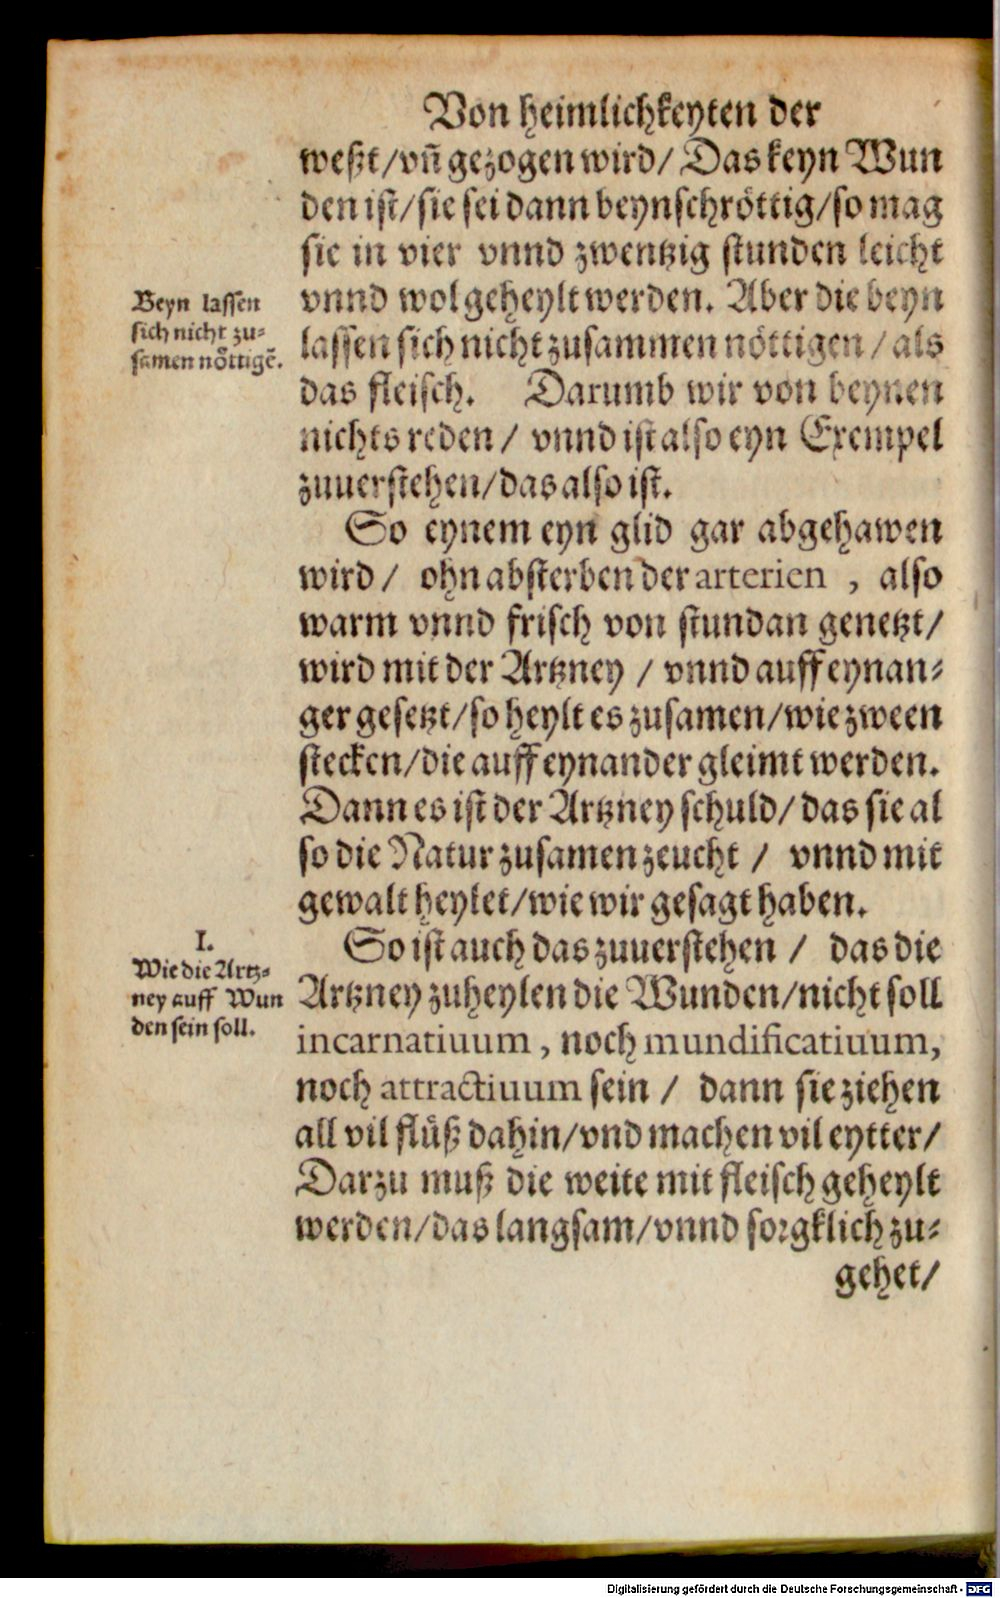 Von heimlichkeyten der
weßt/vn̄ gezogen wird/ Das keyn Wun
den ist/sie sei dann beynschröttig/so mag
sie in vier vnnd zwentzig stunden leicht
vnnd wol geheylt werden. Aber die beyn
lassen sich nicht zusammen nöttigen/als
das fleisch. Darumb wir von beynen
nichts reden/ vnnd ist also eyn Exempel
zuuerstehen/das also ist.
Beyn lassen
sich nicht zu-
samen nöttigē.
So eynem eyn glid gar abgehawen
wird/ ohn absterben der arterien , also
warm vnnd frisch von stundan genetzt/
wird mit der Artzney / vnnd auff eynan-
ger gesetzt/so heylt es zusamen/wie zween
stecken/die auff eynander gleimt werden.
Dann es ist der Artzney schuld/das sie al
so die Natur zusamen zeucht / vnnd mit
gewalt heylet/wie wir gesagt haben.
I.
Wie die Artz-
ney auff Wun
den sein soll.
So ist auch das zuuerstehen / das die
Artzney zuheylen die Wunden/nicht soll
incarnatiuum, noch mundificatiuum,
noch attractiuum sein / dann sie ziehen
all vil flüß dahin/vnd machen vil eytter/
Darzu muß die weite mit fleisch geheylt
werden/das langsam/vnnd sorgklich zu-
gehet/
Digitalisierung gefördert durch die Deutsche Forschungsgemeinschaft - DFG